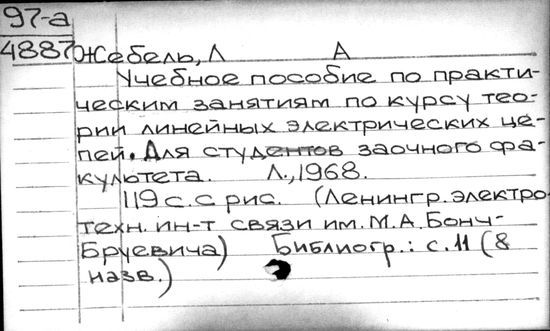 97-а
4887
Жебель, Л А
Учебное пособие по практи-
ческим занятиям по курсу тео-
рии линейных электрических це-
пей. Для студентов заочного фа-
культета. Л., 1968.
119 с. с рис. (Ленингр. электро
техн. ин-т связи им. М.А. Бонч-
Бруевича) Библиогр.: с. 11 (8
назв.)